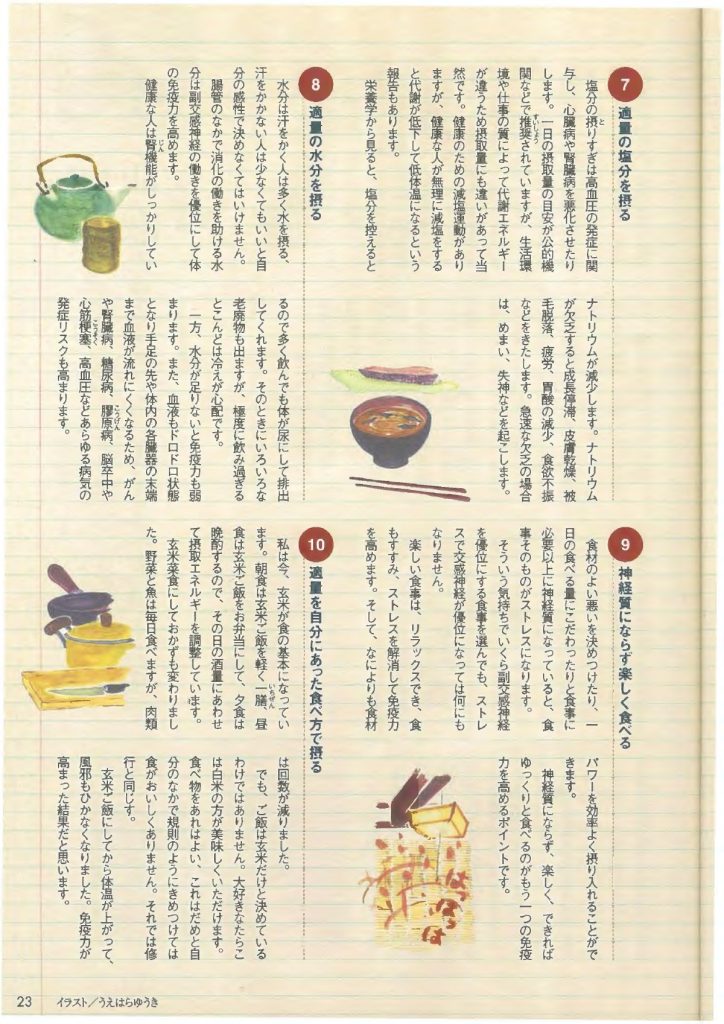 7 適量の塩分を摂る
塩分の摂りすぎは高血圧の発症に関
与し、心臓病や腎臓病を悪化させたり
します。一日の摂取量の目安が公的機
関などで推奨されていますが、生活環
境や仕事の質によって代謝エネルギー
が違うため摂取量にも違いがあって当
然です。健康のための減塩運動があり
ますが、健康な人が無理に減塩をする
と代謝が低下して低体温になるという
報告もあります。
栄養学から見ると、塩分を控えると
ナトリウムが減少します。ナトリウム
が欠乏すると成長停滞、皮膚乾燥、被
毛脱落、疲労、胃酸の減少、食欲不振
などをきたします。急速な欠乏の場合
は、めまい、失神などを起こします。
8 適量の水分を摂る
水分は汗をかく人は多く水を摂る、
汗をかかない人は少なくてもいいと自
分の感性で決めなくてはいけません。
腸管のなかで消化の働きを助ける水
分は副交感神経の働きを優位にして体
の免疫力を高めます。
健康な人は腎機能がしっかりしてい
るので多く飲んでも体が尿にして排出
してくれます。そのときにいろいろな
老廃物も出ますが、極度に飲み過ぎる
とこんどは冷えが心配です。
一方、水分が足りないと免疫力も弱
まります。また、血液もドロドロ状態
となり手足の先や体内の各臓器の末端
まで血液が流れにくくなるため、がん
や腎臓病、糖尿病、膠原病、脳卒中や
心筋梗塞、高血圧などあらゆる病気の
発症リスクも高まります。
9 神経質にならず楽しく食べる
食材のよい悪いを決めつけたり、一
日の食べる量にこだわったりと食事に
必要以上に神経質になっていると、食
事そのものがストレスになります。
そういう気持ちでいくら副交感神経
を優位にする食事を選んでも、ストレ
スで交感神経が優位になっては何にも
なりません。
楽しい食事は、リラックスでき、食
もすすみ、ストレスを解消して免疫力
を高めます。そして、なによりも食材
パワーを効率よく摂り入れることがで
きます。
神経質にならず、楽しく、できれば
ゆっくりと食べるのがもう一つの免疫
力を高めるポイントです。
はっ
はっ
は
10 適量を自分にあった食べ方で摂る
私は今、玄米が食の基本になってい
ます。朝食は玄米ご飯を軽く一膳、昼
食は玄米ご飯をお弁当にして、夕食は
晩酌するので、その日の酒量にあわせ
て摂取エネルギーを調整しています。
玄米菜食にしておかずも変わりまし
た。野菜と魚は毎日食べますが、肉類
は回数が減りました。
でも、ご飯は玄米だけと決めている
わけではありません。大好きなたらこ
は白米の方が美味しくいただけます。
食べ物をあれはよい、これはだめと自
分のなかで規則のようにきめつけては
食がおいしくありません。それでは修
行と同じす。
玄米ご飯にしてから体温が上がって、
風邪もひかなくなりました。免疫力が
高まった結果だと思います。
23 イラスト／うえはらゆうき